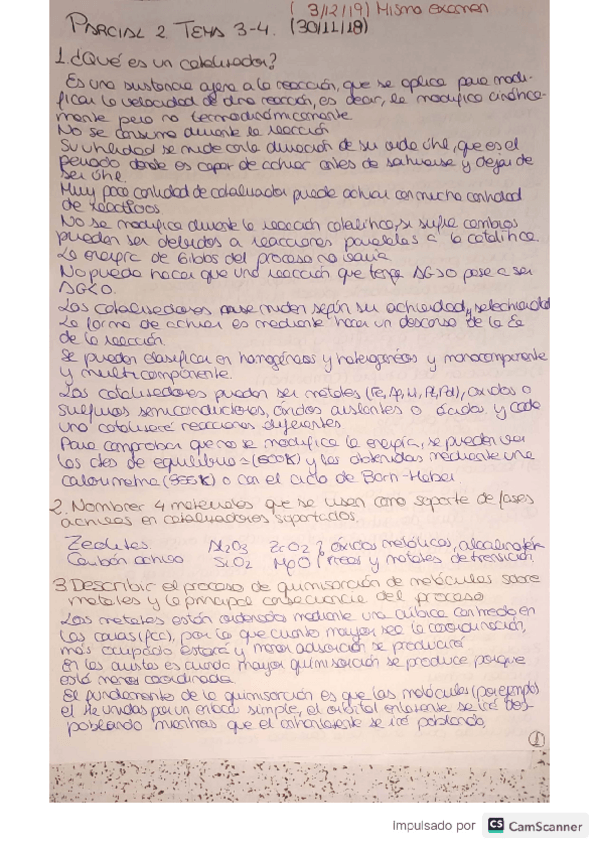 ( 3/12/19) Mismo examen
PARCIAL 2. TEMA 3-4. (30/11/18)
1. ¿Qué es un catalizador?
Es una sustancia ajena a la reacción, que se aplica para modi-
ficar la velocidad de dicha reacción, es decir, la modifica cinética-
mente pero no termodinámicamente
No se consume durante la reacción
Su utilidad se mide con la duración de su vida útil, que es el
periodo donde es capaz de actuar antes de saturarse y dejar de
ser útil.
Muy poca cantidad de catalizador puede actuar con mucha cantidad
de reactivos
No se modifica durante la reacción catalítica, si sufre cambios
pueden ser debidos a reacciones paralelas a la catalítica.
La energía de Gibbs del proceso no varía
No puede hacer que una reacción que tenga ΔG>0 pase a ser
ΔG<0.
Los catalizadores se miden según su actividad y selectividad
La forma de actuar es mediante hacer un descenso de la Ea
de la reacción.
Se pueden clasificar en homogéneos y heterogéneos y monocomponente
y multicomponente.
Los catalizadores pueden ser metales (Fe, Ag, Li, Pt, Pd), óxidos o
sulfuros semiconductores, óxidos aislantes o ácidos y cada
uno catalizará reacciones diferentes
Para comprobar que no se modifica la energía, se pueden usar
las ctes de equilibrio = (600K) y las obtenidas mediante una
calorimetría (355K) o con el ciclo de Born-Haber
2. Nombrar 4 materiales que se usen como soporte de fases
activas en catalizadores soportados.
Zeolitas Al2O3 ZrO2 } óxidos metálicos, alcalinotér-
Carbón activo SiO2 MgO } rreos y metales de transición.
3 Describir el proceso de quimisorción de moléculas sobre
metales y la principal consecuencia del proceso
Los metales están ordenados mediante una cúbica centrada en
las caras (fcc), por lo que cuanto mayor sea la coordinación,
más ocupado estará y menor adsorción se producirá
En las aristas es cuando mayor quimisorción se produce porque
está menos coordinada
El fundamento de la quimisorción es que las moléculas (por ejemplo
el H2 unidas por un enlace simple, el orbital enlazante se irá des-
poblando mientras que el antienlazante se irá poblando.
1
Impulsado por CS CamScanner